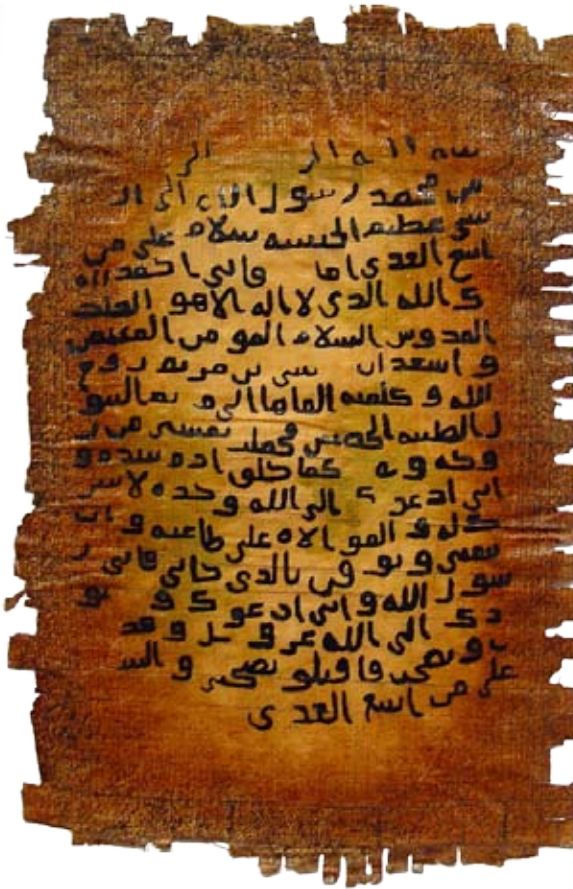 بسم الله الر الر
من محمد رسول الله الى ال
شي عظيم الحبشه سلام على من
اتبع الهدى اما فاني احمد اليه
ك الله الذي لا اله الا هو الملك
القدوس السلام المومن المهيمن
و اشهد ان سى بن مريم روح
الله و كلمته القاها الى م يم البتو
ل الطيبه الحصينه فحملت بعيسى من ر
وحه و ه كما خلق ادم بيده و
اني ادعو ك الى الله وحده لا شر
ك له و الموالاه على طاعته و ان
تتبعني و تو قن بالذي جاني فاني ر
سول الله و اني ادعوك و نو
دك الى الله عز و جل و قد
ب و نصحت فاقبلو نصيحتي و الس
على من اتبع الهدى